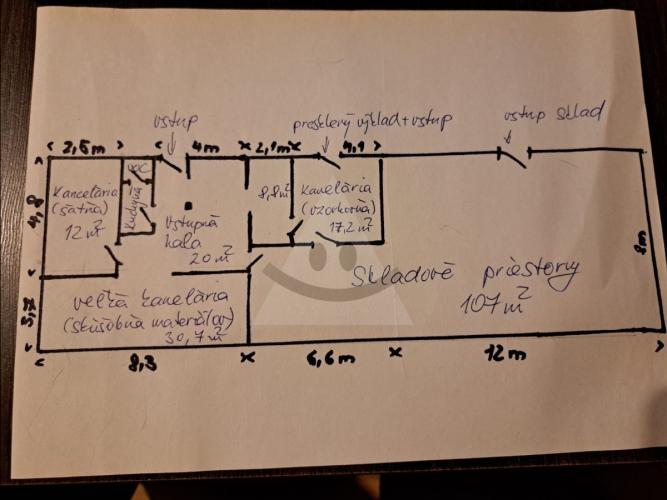 vstup
presklený výklad+vstup
vstup sklad
2,5m
4m
2,1m
4,1
4,8
Kancelária
(šatňa)
12 m²
WC
Kuchyňa
Vstupná
hala
20 m²
8,8m²
Kancelária
(vzorkovňa)
17,2 m²
8m
Skladové priestory
107 m²
3,7
veľká kancelária
(skúšobňa materiálov)
30,7 m²
8,3
6,6 m
12m